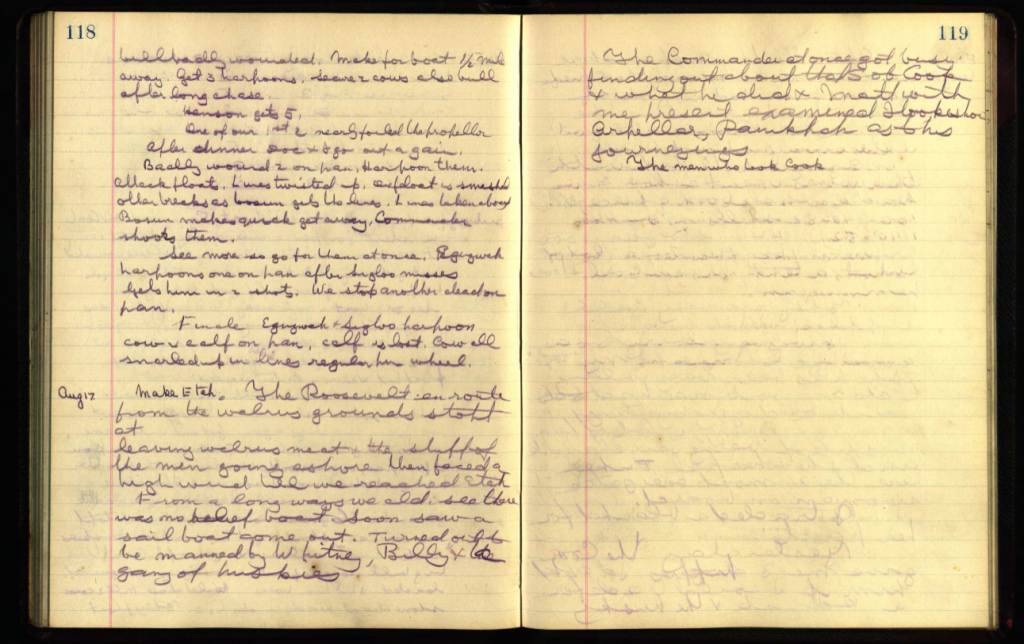 118
bull badly wounded. Make for boat 1/2 mile
away. Get 3 harpoons. Secure 2 cows also bull
after long chase.
Henson gets 5.
One of our 1st 2 nearly fouled the propellor
After dinner Doc & I go out again.
Badly wound 2 on pan, Harpoon them.
Attack floats. Lines twisted up, one float is smashed
other breaks as bosun gets the lines. Lines taken aboard
Bosun makes quick get away, Commander
shoots them.
See more so go for them at once. Egigwah
harpoons one on pan after Sigloo misses
Gets him in 2 shots. We stop another dead on
pan.
Finale Egigwah & Sigloo harpoon
cow & calf on pan, calf is lost. Cow all
snarled up in lines regular pin wheel.
Aug 17 Make Etah. The Roosevelt en route
from the walrus grounds stopt
at
leaving walrus meat & the stuff of
the men going ashore then faced a
high wind till we reached Etah
From a long ways we cld. see there
was no relief boat. Soon saw a
sail boat come out. Turned out to
be manned by Whitney, Billy & a
gang of huskies
119
The Commander at once got busy
finding out about that of Cook
& what he did & Matt with
me present examined Itookishoo
Arpellar, Panikpah as to his
journeyings
The men who took Cook